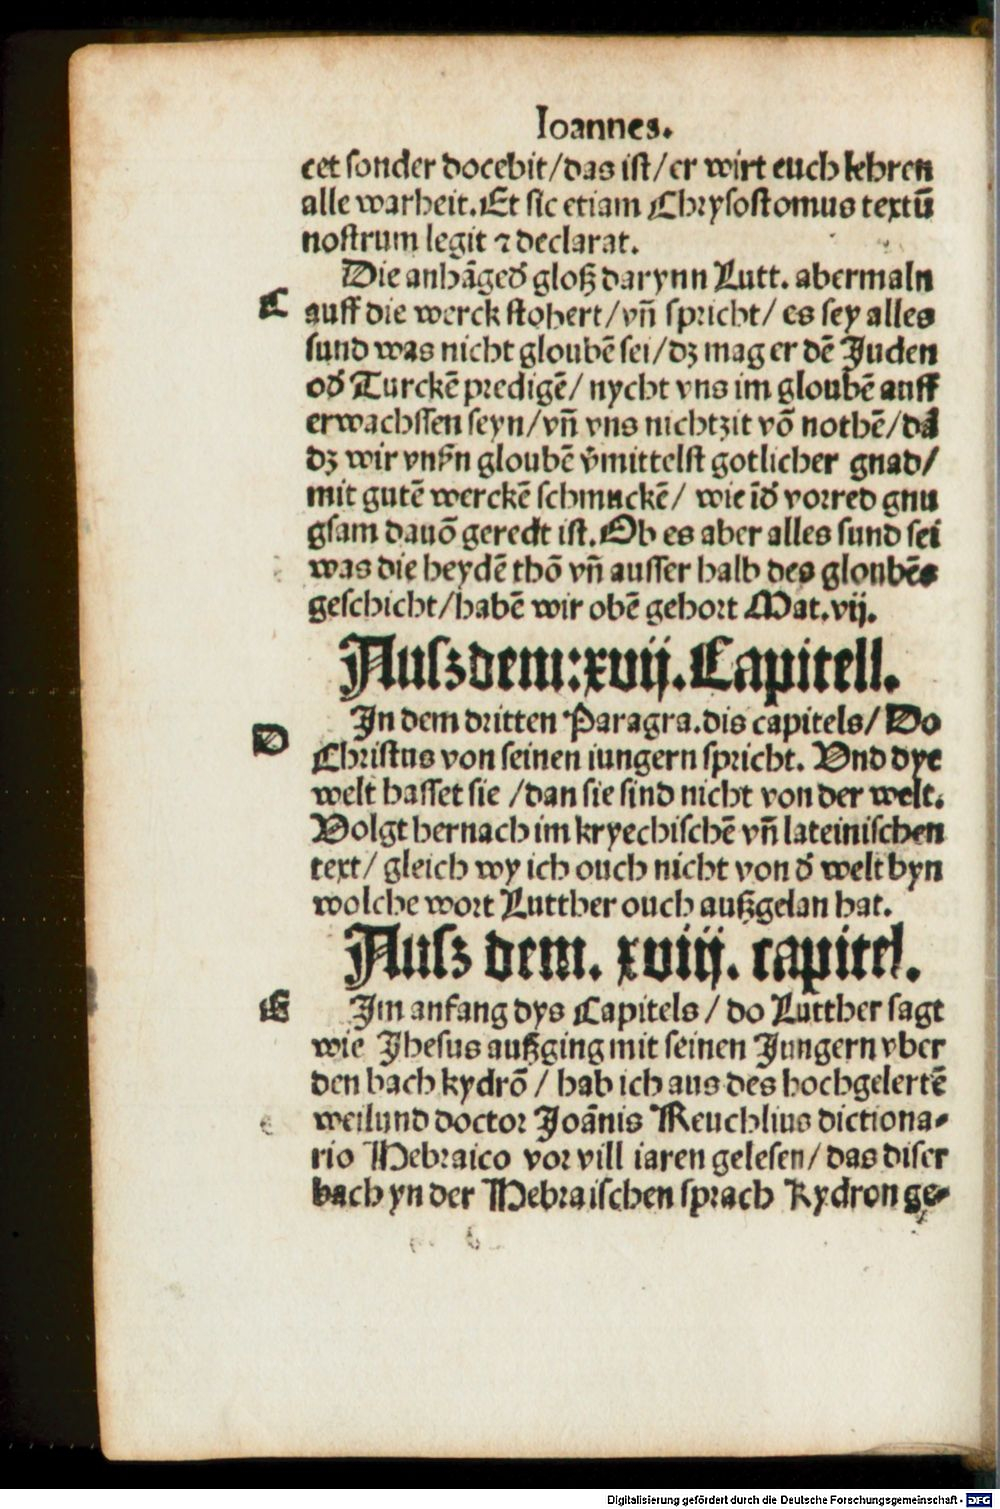 Ioannes.
cet sonder docebit/das ist/er wirt euch lehren
alle warheit. Et sic etiam Chrysostomus textū
nostrum legit ⁊ declarat.
Die anhāgēd gloß darynn Lutt. abermaln
C
auff die werck stohert/vn̄ spricht/ es sey alles
sund was nicht gloubē sei/dz mag er dē Juden
od̕ Turckē predigē/ nycht vns im gloubē auff
erwachssen seyn/vn̄ vns nichtzit vō nothē/dā
dz wir vnßn gloubē v̕mittelst gotlicher gnad/
mit gutē werckē schmuckē/ wie īd̕ vorred gnu
gsam dauō geredt ist. Ob es aber alles sund sei
was die heydē thō vn̄ ausser halb des gloubēs
geschicht/habē wir obē gehort Mat.vij.
Ausz dem: xvij. Capitell.
In dem dritten Paragra.dis capitels/ Do
D
Christus von seinen iungern spricht. Vnd dye
welt hasset sie /dan sie sind nicht von der welt.
Volgt hernach im kryechischē vn̄ lateinischen
text/ gleich wy ich ouch nicht von d̕ welt byn
wolche wort Lutther ouch außgelan hat.
Ausz dem. xviij. capitel.
E
Im anfang dys Capitels / do Lutther sagt
wie Jhesus außging mit seinen Jungern vber
den bach kydrō / hab ich aus des hochgelertē
weilund doctor Joānis Reuchlius dictiona-
rio Hebraico vor vill iaren gelesen/ das diser
bach yn der Hebraischen sprach Kydron ge-
Digitalisierung gefördert durch die Deutsche Forschungsgemeinschaft - DFG